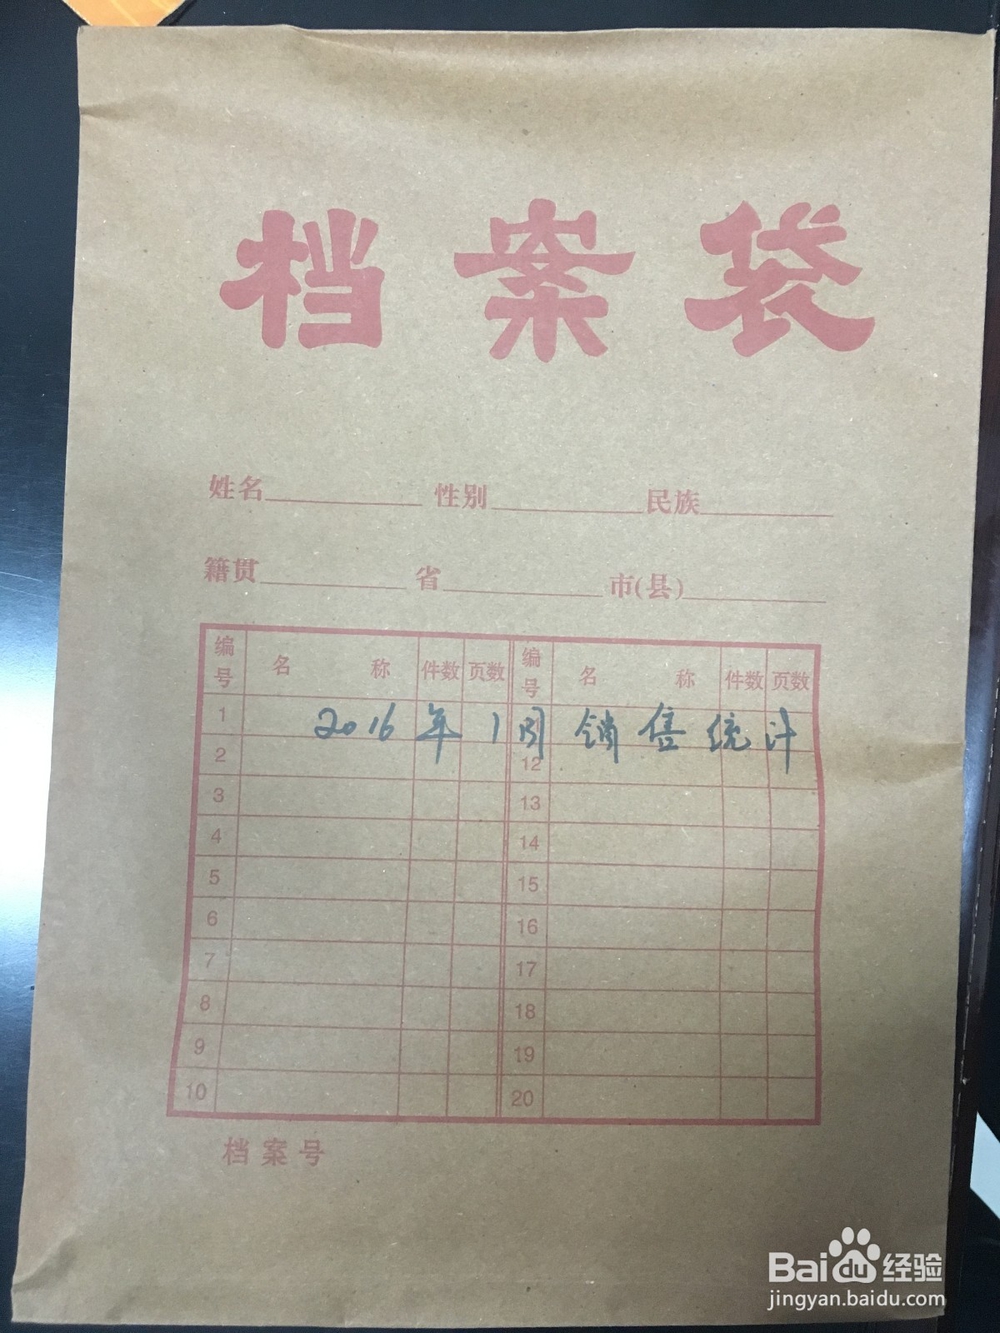 档案袋
姓名 性别 民族
籍贯 省 市(县)
编号 名 称 件数 页数 编号 名 称 件数 页数
1 2016年1周销售统计
2 12
3 13
4 14
5 15
6 16
7 17
8 18
9 19
10 20
档案号
Baidu经验
jingyan.baidu.com